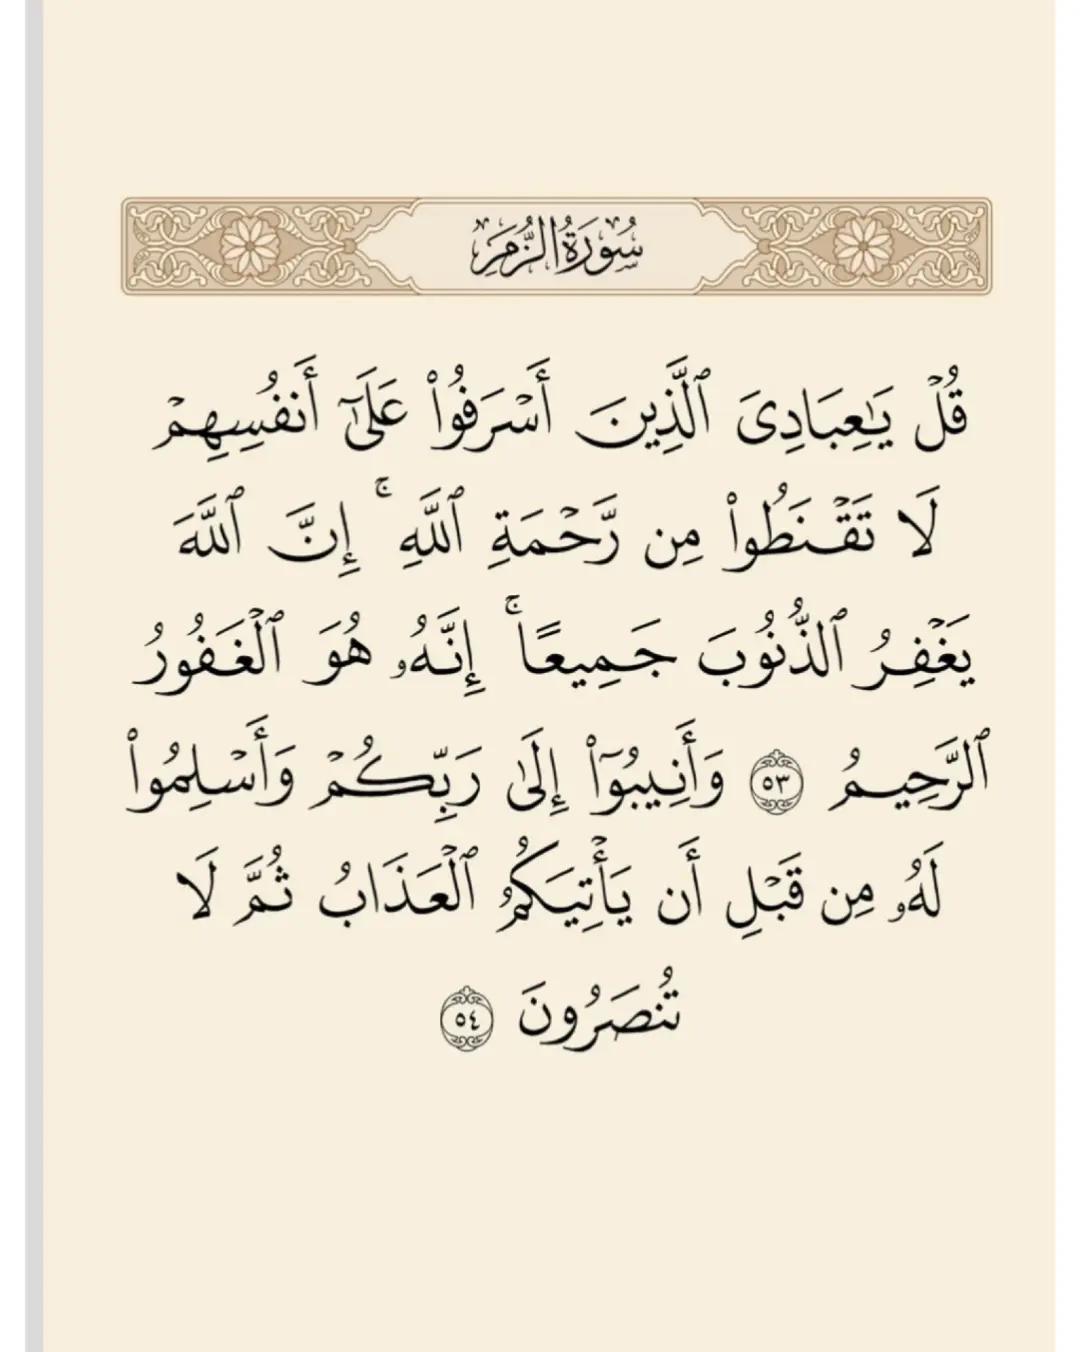 سُورَةُ الزُّمَرِ
قُلۡ يَٰعِبَادِيَ ٱلَّذِينَ أَسۡرَفُواْ عَلَىٰٓ أَنفُسِهِمۡ
لَا تَقۡنَطُواْ مِن رَّحۡمَةِ ٱللَّهِۚ إِنَّ ٱللَّهَ
يَغۡفِرُ ٱلذُّنُوبَ جَمِيعًاۚ إِنَّهُۥ هُوَ ٱلۡغَفُورُ
ٱلرَّحِيمُ ٥٣ وَأَنِيبُوٓاْ إِلَىٰ رَبِّكُمۡ وَأَسۡلِمُواْ
لَهُۥ مِن قَبۡلِ أَن يَأۡتِيَكُمُ ٱلۡعَذَابُ ثُمَّ لَا
تُنصَرُونَ ٥٤